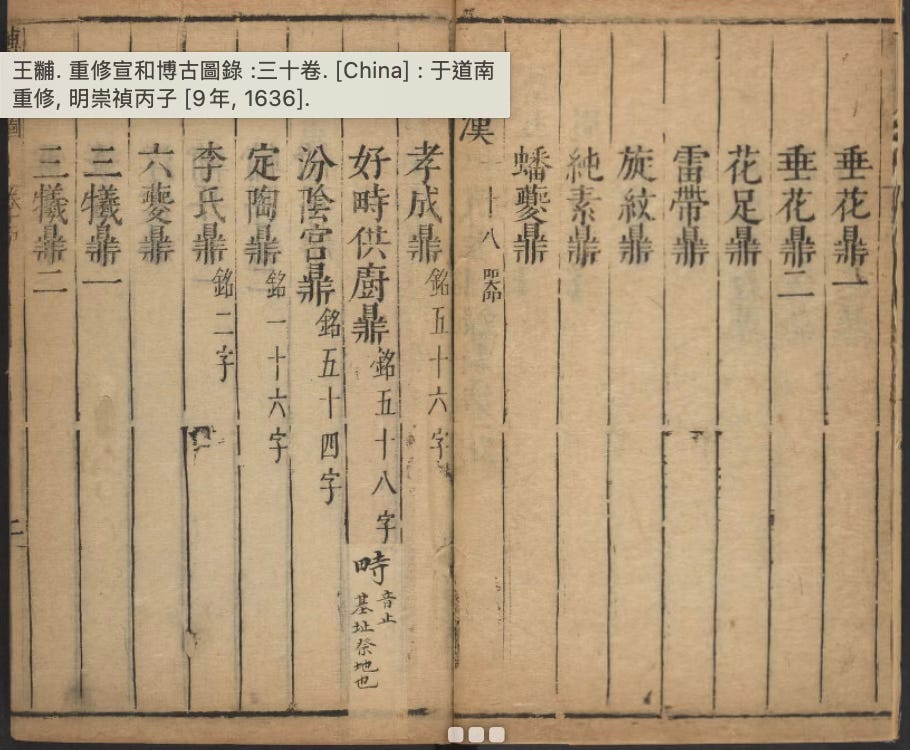 王黼. 重修宣和博古圖錄 :三十卷. [China] : 于道南
重修, 明崇禎丙子 [9年, 1636].
垂花鼎一
垂花鼎二
花足鼎
雷帶鼎
旋紋鼎
純素鼎
蟠夔鼎
漢 一十八
孝成鼎 銘五十六字
好畤供廚鼎 銘五十八字
畤 音止 基址祭地也
汾陰宮鼎 銘五十四字
定陶鼎 銘一十六字
李氏鼎 銘二字
六夔鼎
三犧鼎一
三犧鼎二
二